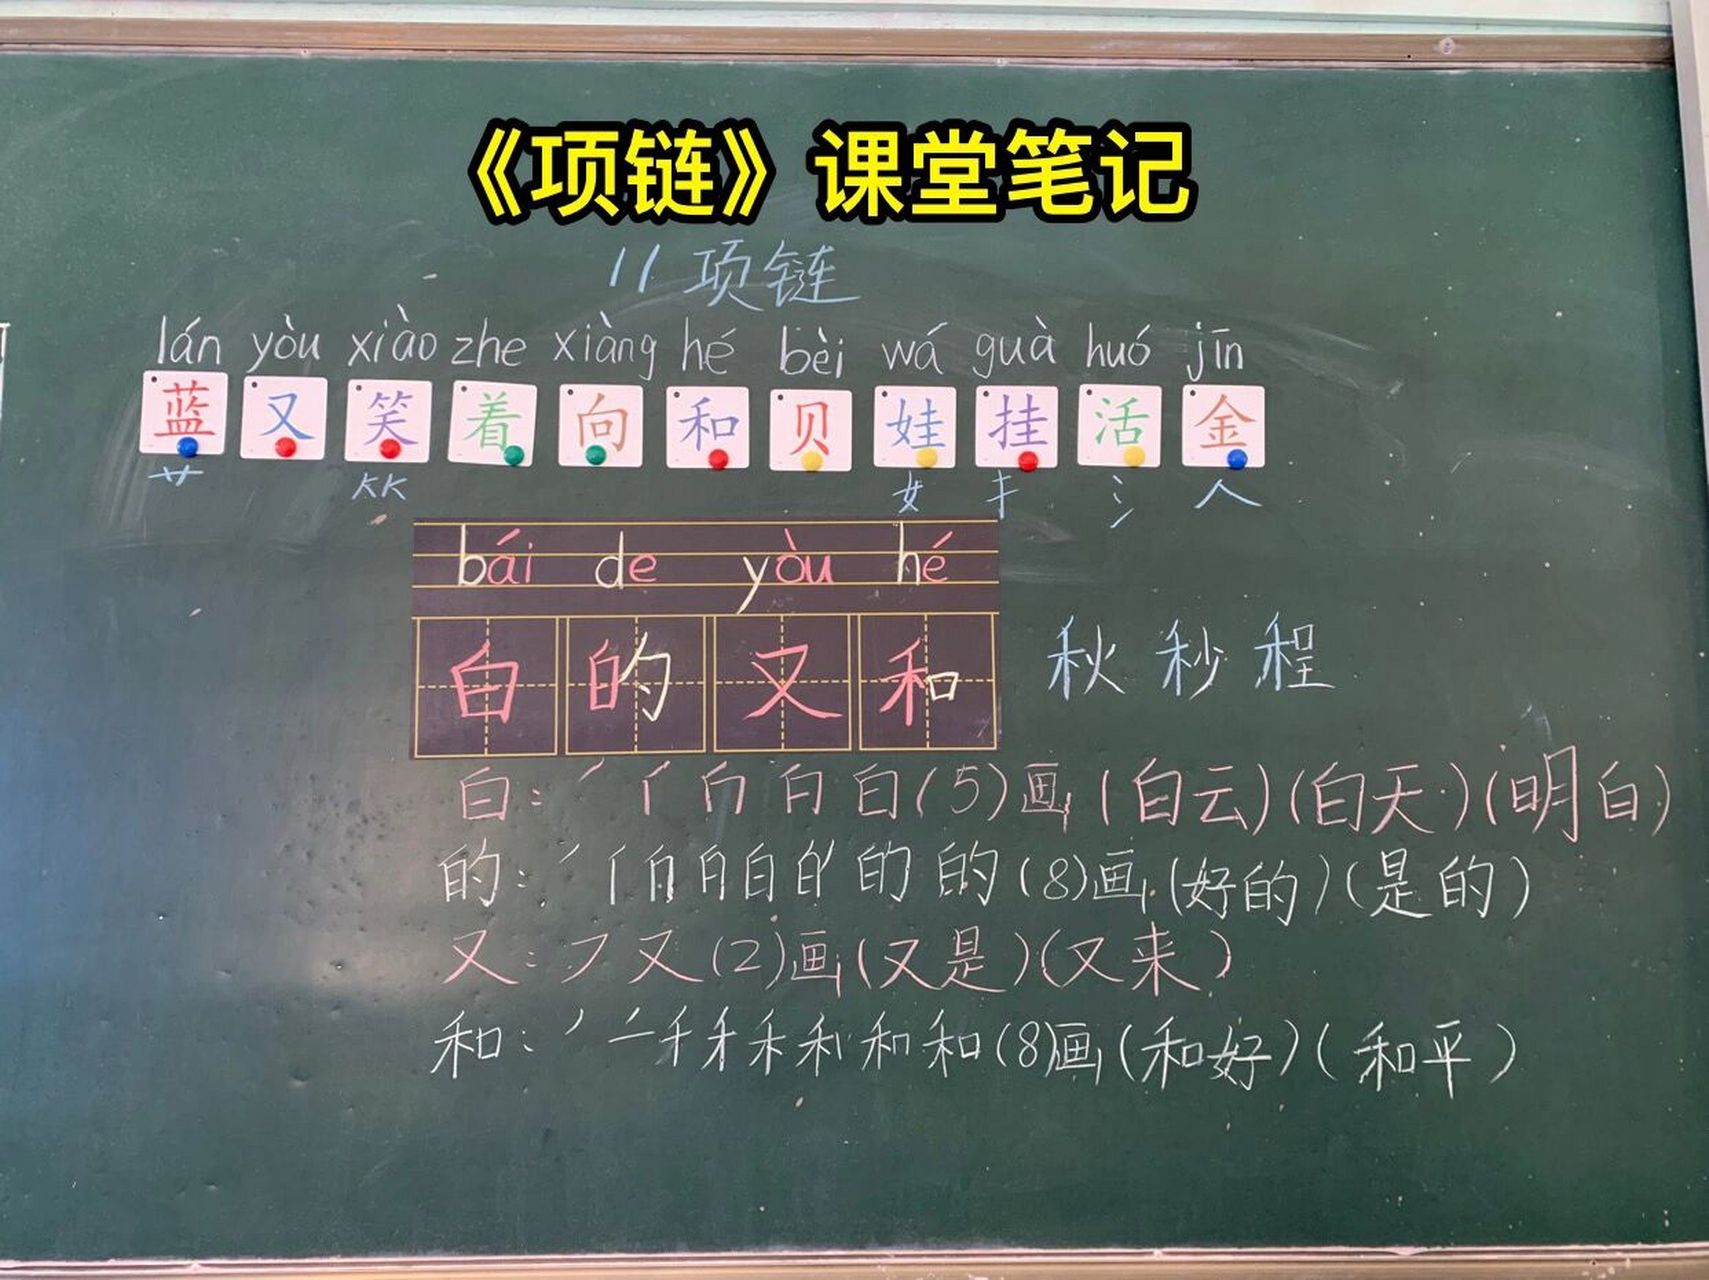 《项链》课堂笔记
11 项链
lán yòu xiào zhe xiàng hé bèi wá guà huó jīn
蓝 又 笑 着 向 和 贝 娃 挂 活 金
艹 ⺮ 女 扌 氵 人
bái de yòu hé
白 的 又 和 秋 秒 程
白: 白(5)画(白云)(白天)(明白)
的: 的 的(8)画(好的)(是的)
又: 又(2)画(又是)(又来)
和: 禾 和(8)画(和好)(和平)